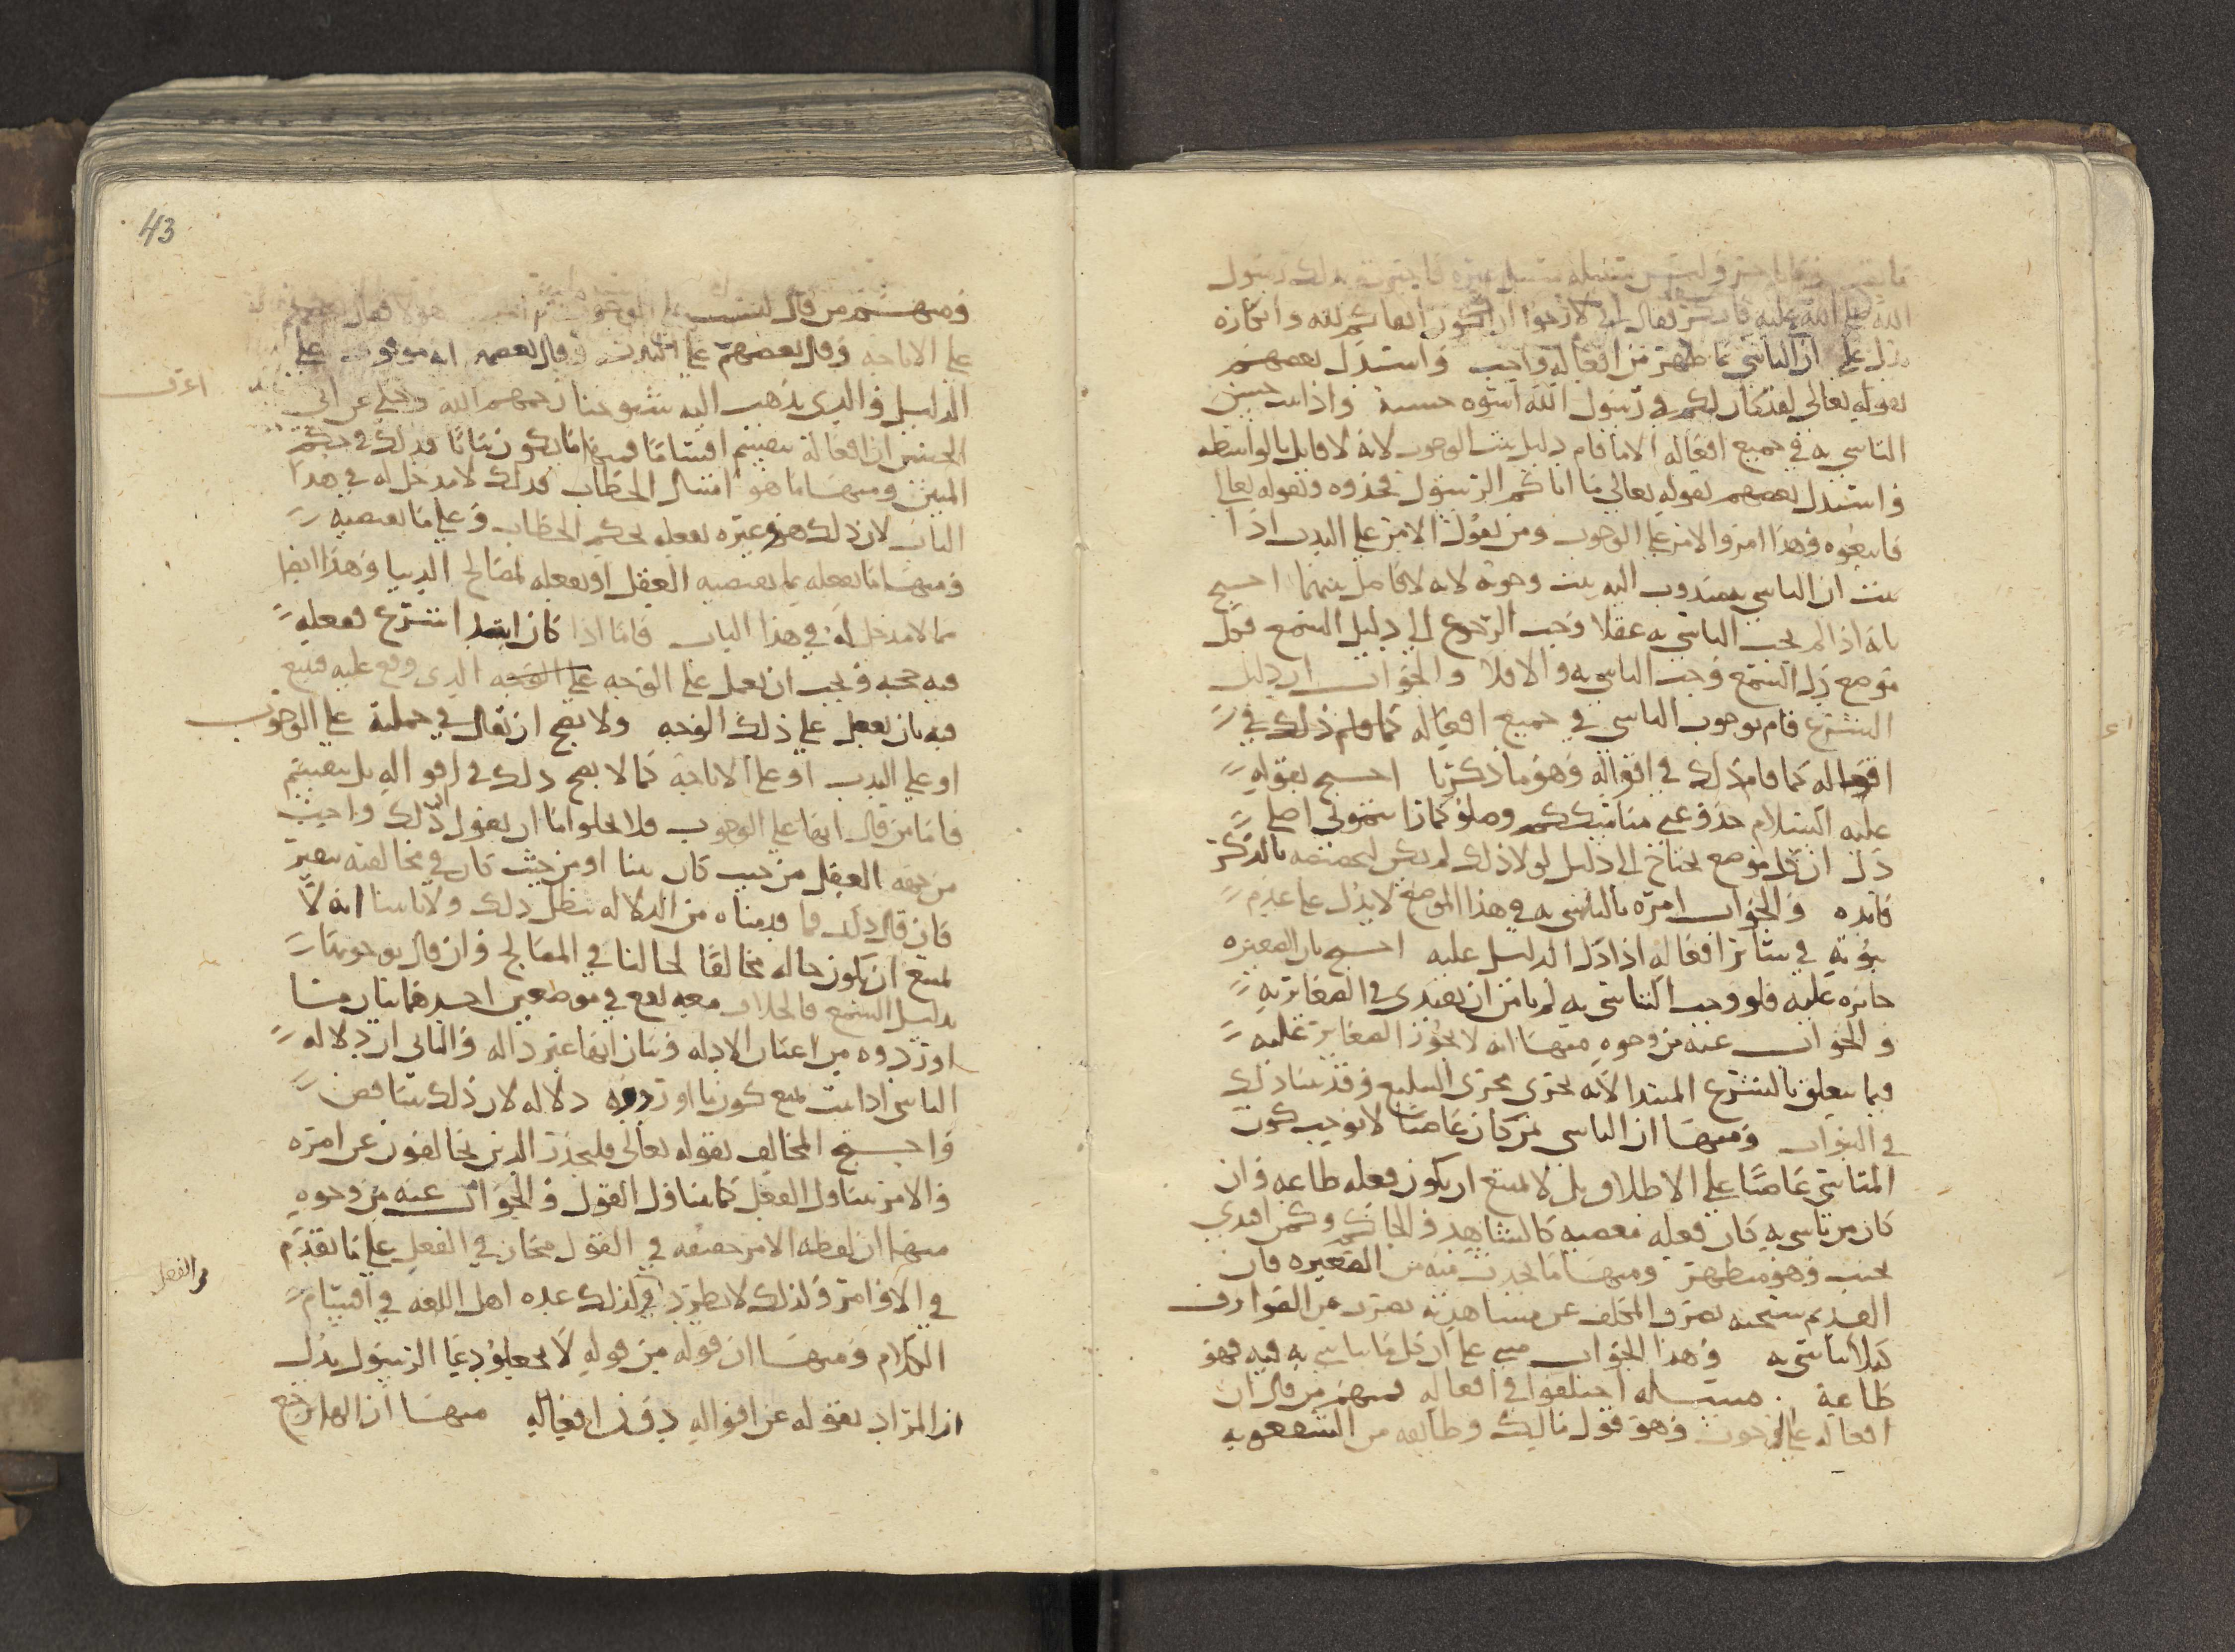 الله صلى الله عليه فانكر فقال اني لارجوا ان اكون اتقاكم لله وانكاره
يدل على ان التاسي بما ظهر من افعاله واجب واستدل بعضهم
بقوله تعالى لقد كان لكم في رسول الله اسوه حسنة واذا ثبت حسن
التاسي به في جميع افعاله الا ما قام دليل ثبت الوجوب لانه لا قايل بالواسطه
واستدل بعضهم بقوله تعالى ما اتاكم الرسول فخذوه وبقوله تعالى
فاتبعوه وهذا امر والامر على الوجوب ومن يقول الامر على الندب اذا
ثبت ان التاسي به مندوب اليه ثبت وجوبه لانه لا فاصل بينهما احتج
بانه اذا لم يجب التاسي به عقلا وجب الرجوع الى دليل السمع فكل
موضع دل السمع وجب التاسي به والا فلا والجواب ان دليل
الشرع قام بوجوب التاسي في جميع افعاله كما قام ذلك في
اقواله كما قام ذلك في اقواله وهو ما ذكرنا احتج بقوله
عليه السلام خذوا عني مناسككم وصلوا كما رايتموني اصلي
دل ان كل موضع يحتاج الى دليل لولا ذلك لم يكن لتخصيصه بالذكر
فايده والجواب امره بالتاسي به في هذا الموضع لا يدل على عدم
ثبوته في سائر افعاله اذا دل الدليل عليه احتج بان الصغيره
جائزه عليه فلو وجب التاسي به لم يامن ان يقتدى في الصغائر به
والجواب عنه من وجوه منها انه لا يجوز الصغاير عليه
فيما يتعلق بالشرع المبتدا لانه يجري مجرى التبليغ وقد بينا ذلك
في النبوات ومنها ان التاسي بمن كان عاصيا لا يوجب كون
المتاسي عاصيا على الاطلاق بل لا يمتنع ان يكون فعله طاعه وان
كان من تاسى به كان فعله معصيه كالشاهد والحاكم وكمن اقتدى
بجنب وهو متطهر ومنها ما يحدث منه من الصغيره فان
القديم سبحنه يصرف المكلف عن مشاهدته بضرب من الصوارف
كيلا يتاسى به وهذا الجواب مبني على ان كل ما يتاسى به فيه فهو
طاعة . مسئله اختلفوا في افعاله فمنهم من قال ان
افعاله على الوجوب وهو قول مالك وطائفه من الشفعويه
43
ومنهم من قال ليست على الوجوب ثم اختلف هولا فقال بعضهم
على الاباحه وقال بعضهم على الندب وقال بعضهم انه موقوف على
الدليل والذي يذهب اليه شيوخنا رحمهم الله وحكي عن ابي
الحسين ان افعاله تنقسم اقساما فمنها ما يكون بيانا فذلك في حكم
المبين ومنها ما هو امتثال الخطاب فذلك لا مدخل له في هذا
الباب لان ذلك هو وغيره بفعله بحكم الخطاب وعلى ما يقتضيه
ومنها ما يفعله بما يقتضيه العقل او يفعله لمصالح الدنيا وهذا ايضا
مما لا مدخل له في هذا الباب فاما اذا كان ابتدا شرع ففعله
فيه حجه ويجب ان يعمل على الوجه على الوجه الذي وقع عليه فيتبع
فيه بان يفعل على ذلك الوجه ولا يصح ان يقال في جملته على الوجوب
او على الندب او على الاباحه كما لا يصح ذلك في اقواله بل ينقسم
فاما من قال انها على الوجوب فلا يخلوا اما ان يقول ذلك واجب
من جهه العقل من حيث كان نبيا او من حيث كان في مخالفته تنفير
فان قال ذلك فما قدمناه من الدلاله يبطل ذلك ولانا بينا انه لا
يمتنع ان يكون حاله مخالفا لحالنا في المصالح وان قال بوجوبها
بدليل السمع فالخلاف معه يقع في موضعين احدهما بيان ما
اوردوه من اعيان الادله وبيان انها غير داله والثاني ان دلاله
التاسي اذا ثبت يمنع كون ما اوردوه دلاله لان ذلك يتناقض
واحتج المخالف بقوله تعالى فليحذر الذين يخالفون عن امره
والامر يتناول الفعل كما يتناول القول والجواب عنه من وجوه
منها ان لفظه الامر حقيقه في القول مجاز في الفعل على ما تقدم
في الاوامر ولذلك لا يطرد ولذلك عده اهل اللغه في اقسام
الكلام ومنها ان قوله من قوله لا تجعلوا دعا الرسول يدل
ان المراد بقوله عن اقواله دون افعاله منها ان الها يرجع
من الفعل